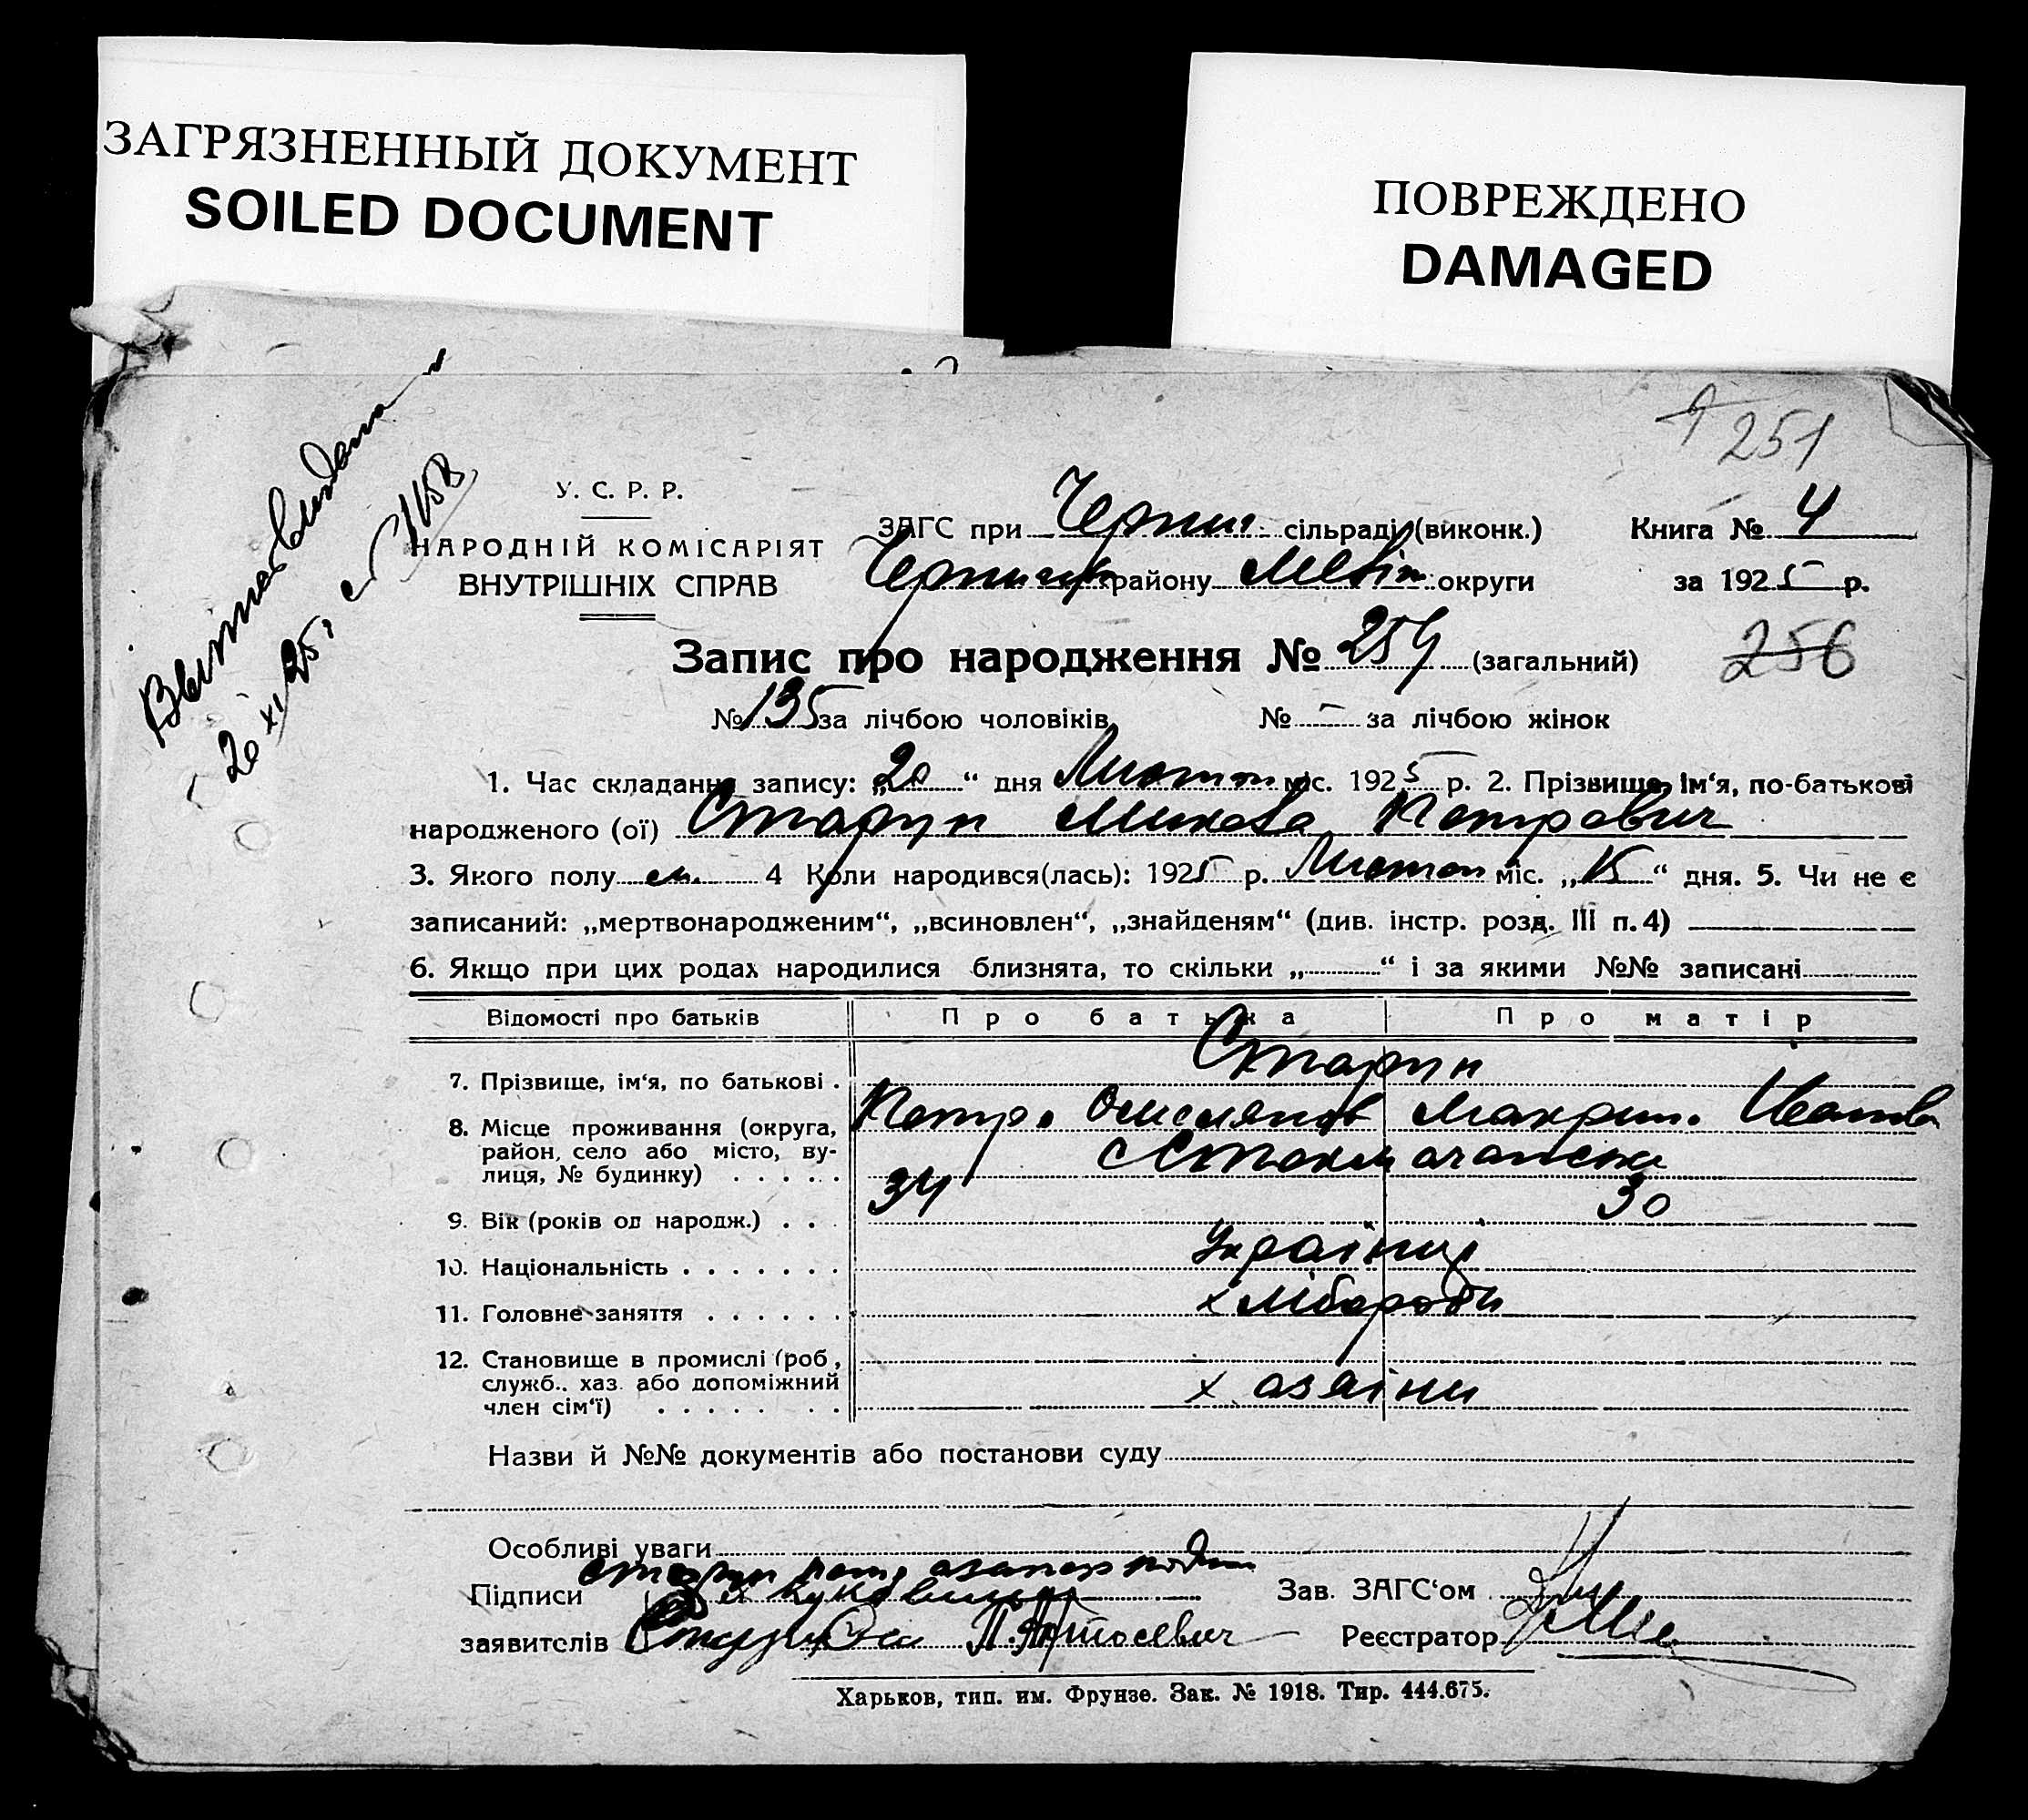 ЗАГРЯЗНЕННЫЙ ДОКУМЕНТ
SOILED DOCUMENT
ПОВРЕЖДЕНО
DAMAGED
251
У. С. Р. Р.
НАРОДНІЙ КОМІСАРІЯТ
ВНУТРІШНІХ СПРАВ
ЗАГС при сільраді (виконк.) Книга № 4
району округи за 1925 р.
Запис про народження № 254 (загальний) 256
№ 135 за лічбою чоловіків № – за лічбою жінок
1. Час складання запису: „20“ дня Листоп міс. 1925 р. 2. Прізвище, ім‘я, по-батькові
народженого (ої) Старун Микола Петрович
3. Якого полу м. 4 Коли народився(лась): 1925 р. Листоп міс. „15“ дня. 5. Чи не є
записаний: „мертвонародженим“, „всиновлен“, „знайденям“ (див. інстр. розд. III п. 4)
6. Якщо при цих родах народилися близнята, то скільки „ “ і за якими №№ записані
Відомості про батьків Про батька Про матір
7. Прізвище, ім‘я, по батькові . Старун
Петр. Макрин. Иванов
8. Місце проживання (округа,
район, село або місто, ву-
лиця, № будинку) . . . . .
9. Вік (років од народж.) . . . 34 30
10. Національність . . . . . . . Українці
11. Головне заняття . . . . . . хлібороби
12. Становище в промислі (роб,
служб.. хаз. або допоміжний
член сім‘ї) . . . . . . . хазяіни
Назви й №№ документів або постанови суду
Особливі уваги
Підписи Зав. ЗАГС‘ом
заявителів Реєстратор
Харьков, тип. им. Фрунзе. Зак. № 1918. Тир. 444.675.